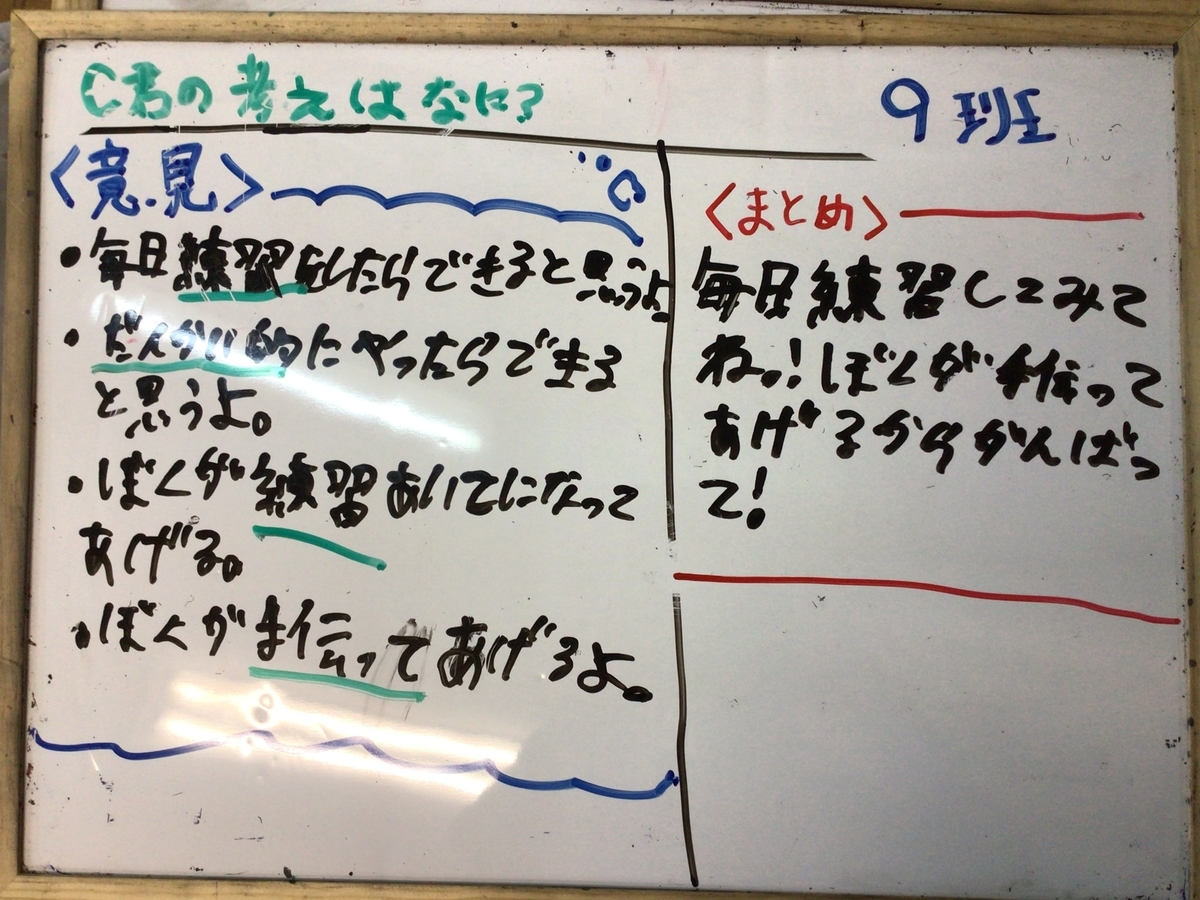 C君の考えはなに?
9班
〈意見〉
・毎日練習をしたらできると思うよ
・だんかい的にやったらできる
と思うよ。
・ぼくが練習あいてになって
あげる。
・ぼくが手伝ってあげるよ。
〈まとめ〉
毎日練習してみて
ねっ!ぼくが手伝って
あげるからがんばっ
て!